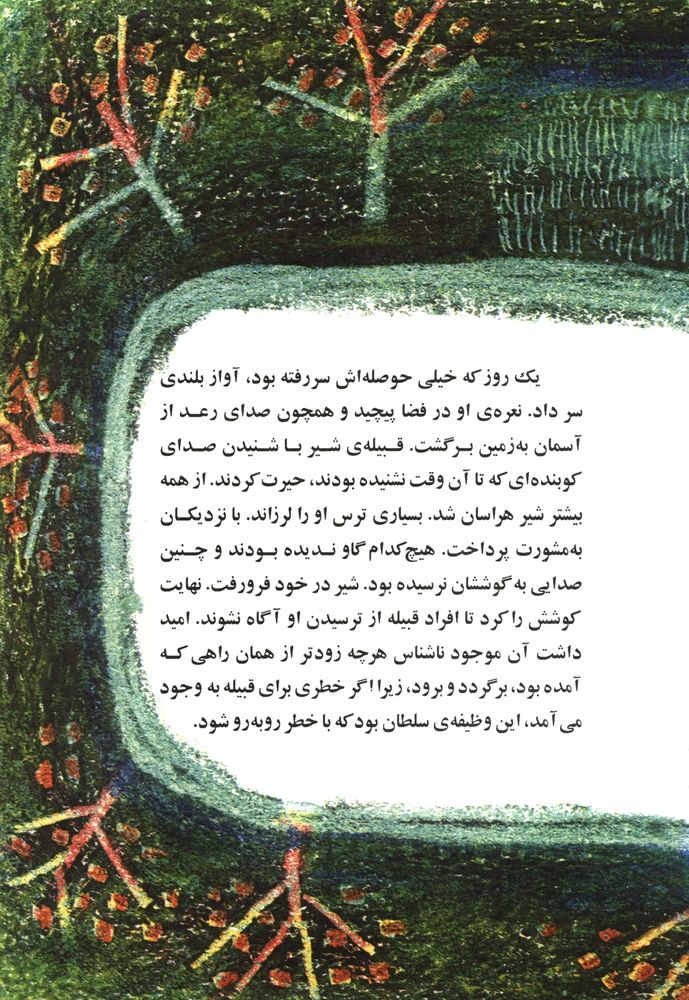 یك روز که خیلی حوصله‌اش سررفته بود، آواز بلندی
سر داد. نعره‌ی او در فضا پیچید و همچون صدای رعد از
آسمان به‌زمین برگشت. قبیله‌ی شیر با شنیدن صدای
کوبنده‌ای که تا آن وقت نشنیده بودند، حیرت کردند. از همه
بیشتر شیر هراسان شد. بسیاری ترس او را لرزاند. با نزدیکان
به‌مشورت پرداخت. هیچ‌کدام گاو ندیده بودند و چنین
صدایی به گوششان نرسیده بود. شیر در خود فرورفت. نهایت
کوشش را کرد تا افراد قبیله از ترسیدن او آگاه نشوند. امید
داشت آن موجود ناشناس هرچه زودتر از همان راهی که
آمده بود، برگردد و برود، زیرا اگر خطری برای قبیله به وجود
می‌آمد، این وظیفه‌ی سلطان بود که با خطر روبه‌رو شود.